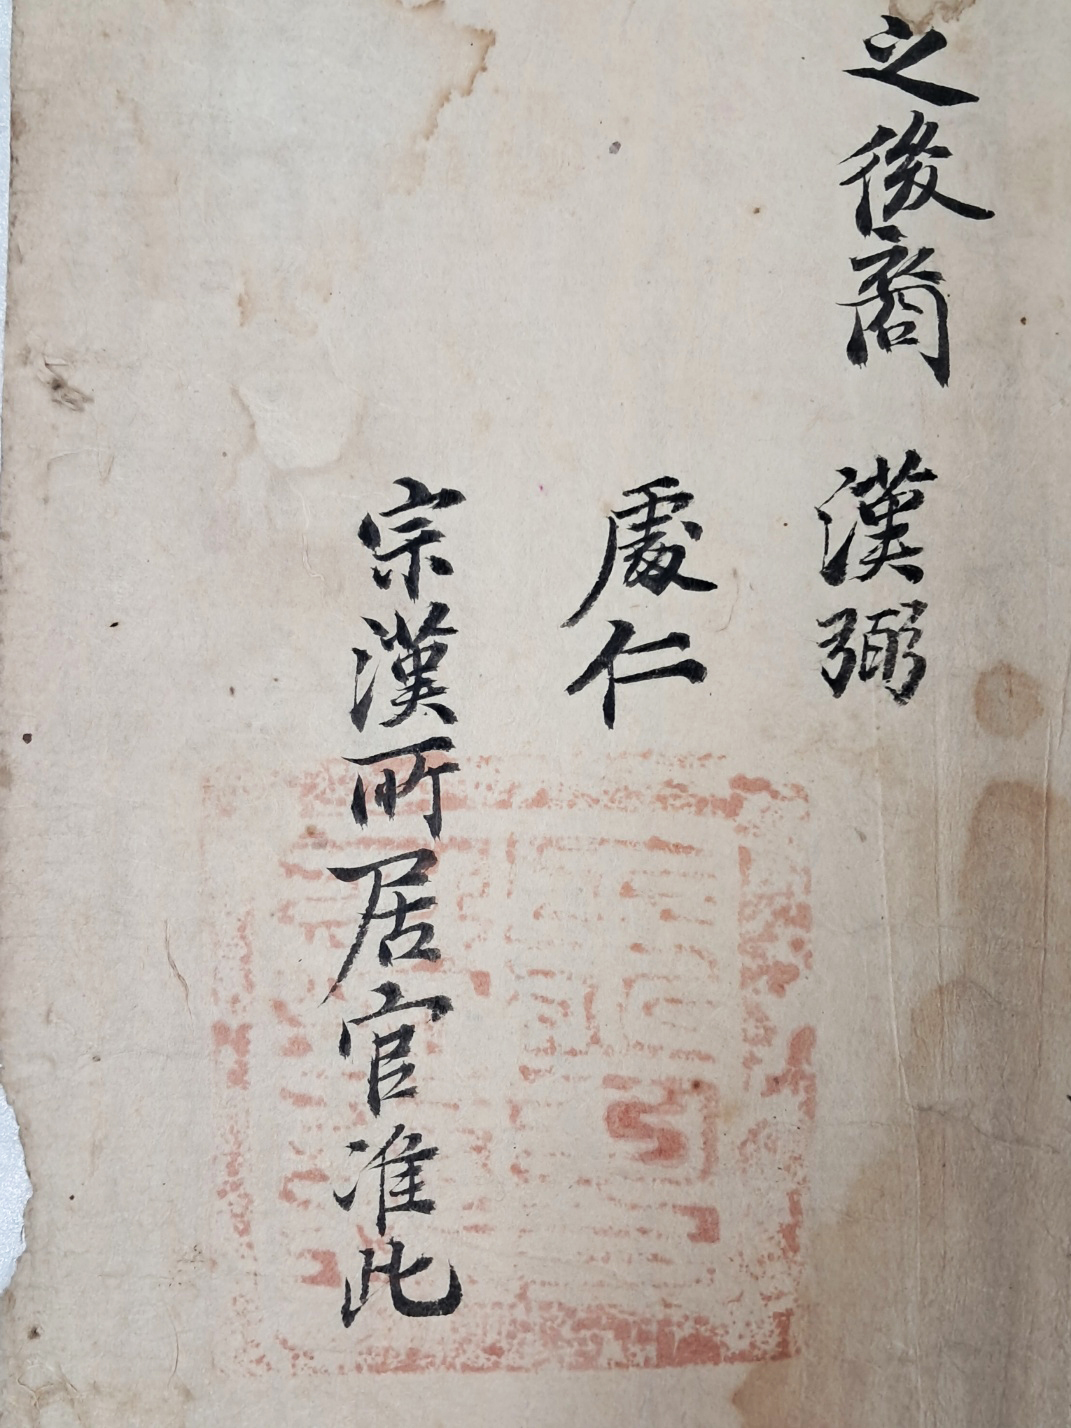 之後裔 漢弼
處仁
宗漢所居官准此